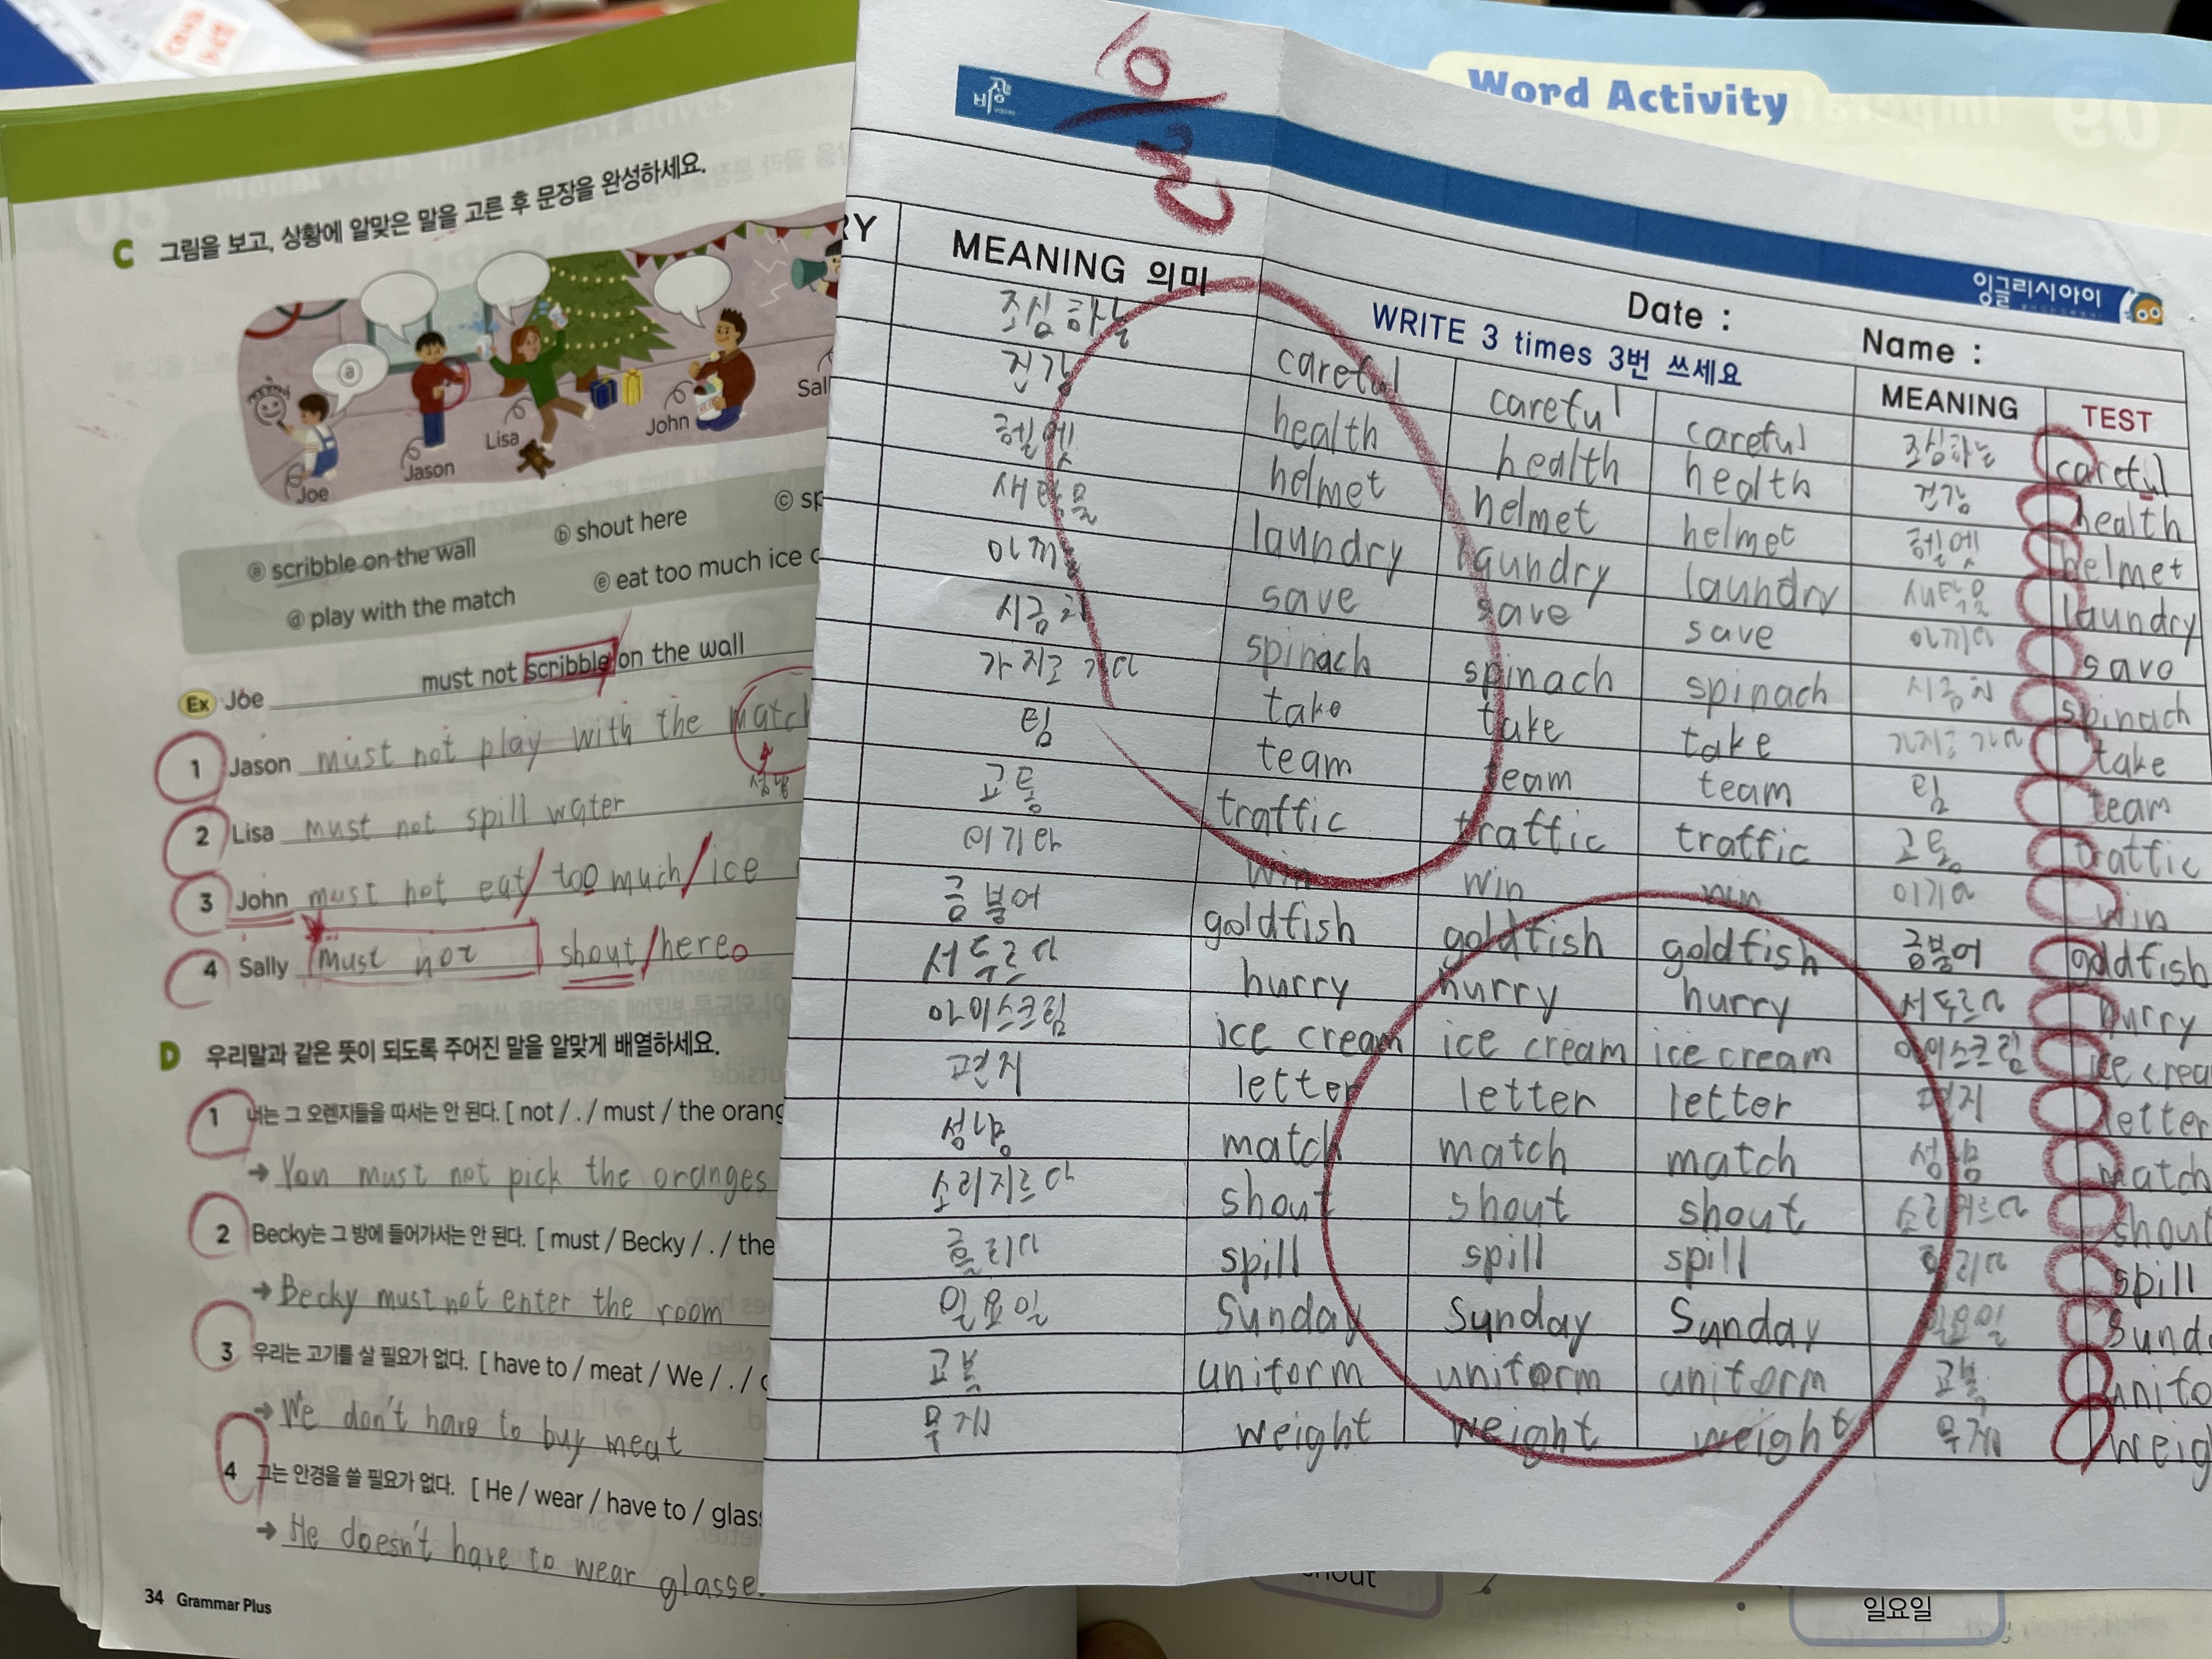 C 그림을 보고, 상황에 알맞은 말을 고른 후 문장을 완성하세요.
ⓐ
Joe
Jason
Lisa
John
Sall
ⓐ scribble on the wall ⓑ shout here ⓒ sp
ⓓ play with the match ⓔ eat too much ice c
Ex Joe must not scribble on the wall
1 Jason must not play with the match
성냥
2 Lisa must not spill water
3 John must not eat/ too much/ ice
4 Sally must not shout/here.
D 우리말과 같은 뜻이 되도록 주어진 말을 알맞게 배열하세요.
1 너는 그 오렌지들을 따서는 안 된다. [ not / . / must / the orang
→ You must not pick the oranges
2 Becky는 그 방에 들어가서는 안 된다. [ must / Becky / . / the
→ Becky must not enter the room
3 우리는 고기를 살 필요가 없다. [ have to / meat / We / . /
→ We don't have to buy meat
4 그는 안경을 쓸 필요가 없다. [ He / wear / have to / glas
→ He doesn't have to wear glasse
34 Grammar Plus
Word Activity
비상
잉글리시아이
Date : Name :
RY MEANING 의미 WRITE 3 times 3번 쓰세요 MEANING TEST
조심하는 careful careful careful 조심하는 careful
건강 health health health 건강 health
헬멧 helmet helmet helmet 헬멧 helmet
새탁물 laundry laundry laundry 새탁물 laundry
아끼 save save save 아끼다 save
시금치 spinach spinach spinach 시금치 spinach
가지고 가다 take take take 가지고 가다 take
팀 team team team 팀 team
교통 traffic traffic traffic 교통 traffic
이기다 win win win 이기다 win
금붕어 goldfish goldfish goldfish 금붕어 goldfish
서두르다 hurry hurry hurry 서두르다 hurry
아이스크림 ice cream ice cream ice cream 아이스크림 ice crea
편지 letter letter letter 편지 letter
성냥 match match match 성냥 match
소리지르다 shout shout shout 소리지르다 shout
흘리다 spill spill spill 흘리다 spill
일요일 Sunday Sunday Sunday 일요일 Sund
교복 uniform uniform uniform 교복 unifo
무게 weight weight weight 무게 weig
shout
일요일